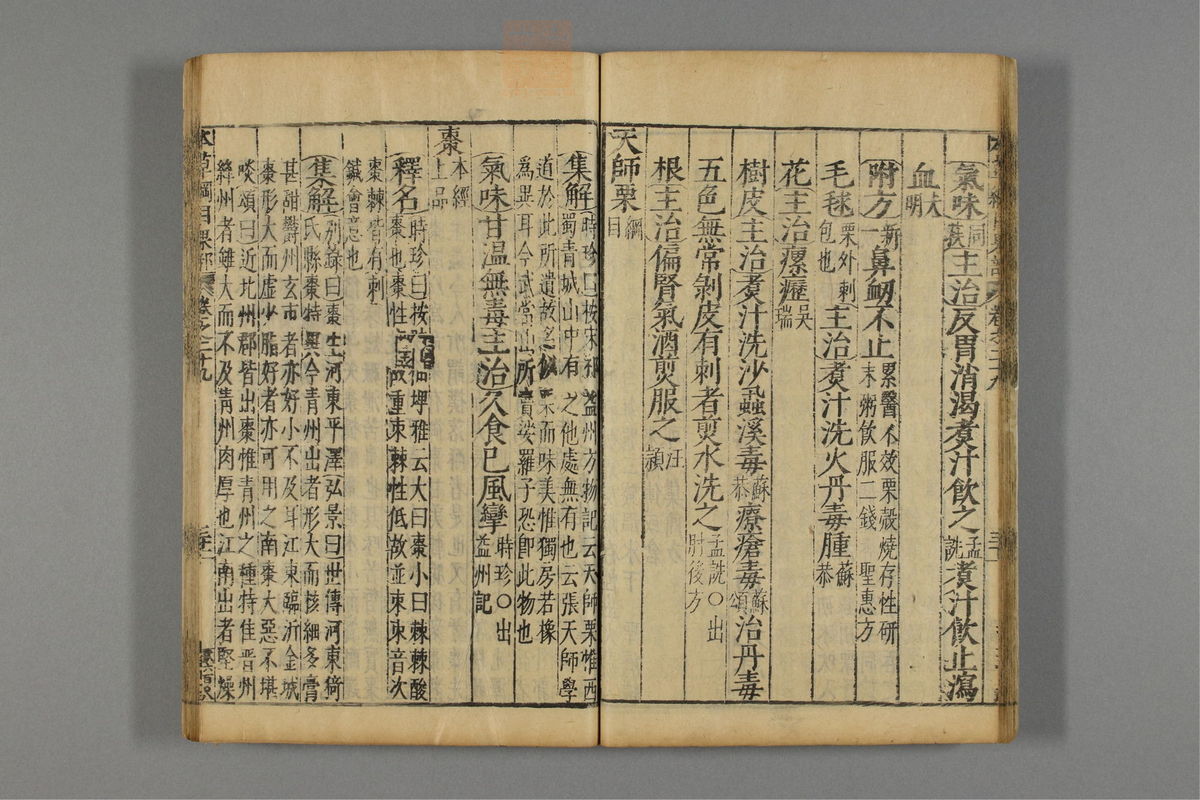 氣味同莢主治反胃消渴煮汁飲之孟詵煮汁飲止瀉
血大明
附方新一鼻衂不止累醫不效栗殼燒存性研末粥飲服二錢聖惠方
毛毬栗外刺包也主治煮汁洗火丹毒腫蘇恭
花主治瘰癧吳瑞
樹皮主治煮汁洗沙蝨溪毒蘇恭療瘡毒蘇頌治丹毒
五色無常剝皮有刺者煎水洗之孟詵○出肘後方
根主治偏腎氣酒煎服之汪穎
天師栗綱目
集解時珍曰按宋祁益州方物記云天師栗惟西蜀青城山中有之他處無有也云張天師學
道於此所遺故名似栗而味美惟獨房若橡為異耳今武當山所賣娑羅子恐即此物也
氣味甘溫無毒主治久食已風攣時珍○出益州記
棗本經上品
釋名時珍曰按陸佃埤雅云大曰棗小曰棘棘酸棗也棗性高故重朿棘性低故並朿朿音次
棗棘皆有刺鍼會意也
集解別錄曰棗生河東平澤弘景曰世傳河東猗氏縣棗特異今青州出者形大而核細多膏
甚甜鬱州玄市者亦好小不及耳江東臨沂金城棗形大而虛少脂好者亦可用之南棗大惡不堪
啖頌曰近北州郡皆出棗惟青州之種特佳晉州絳州者雖大而不及青州肉厚也江南出者堅燥
本草綱目果部卷之二十九